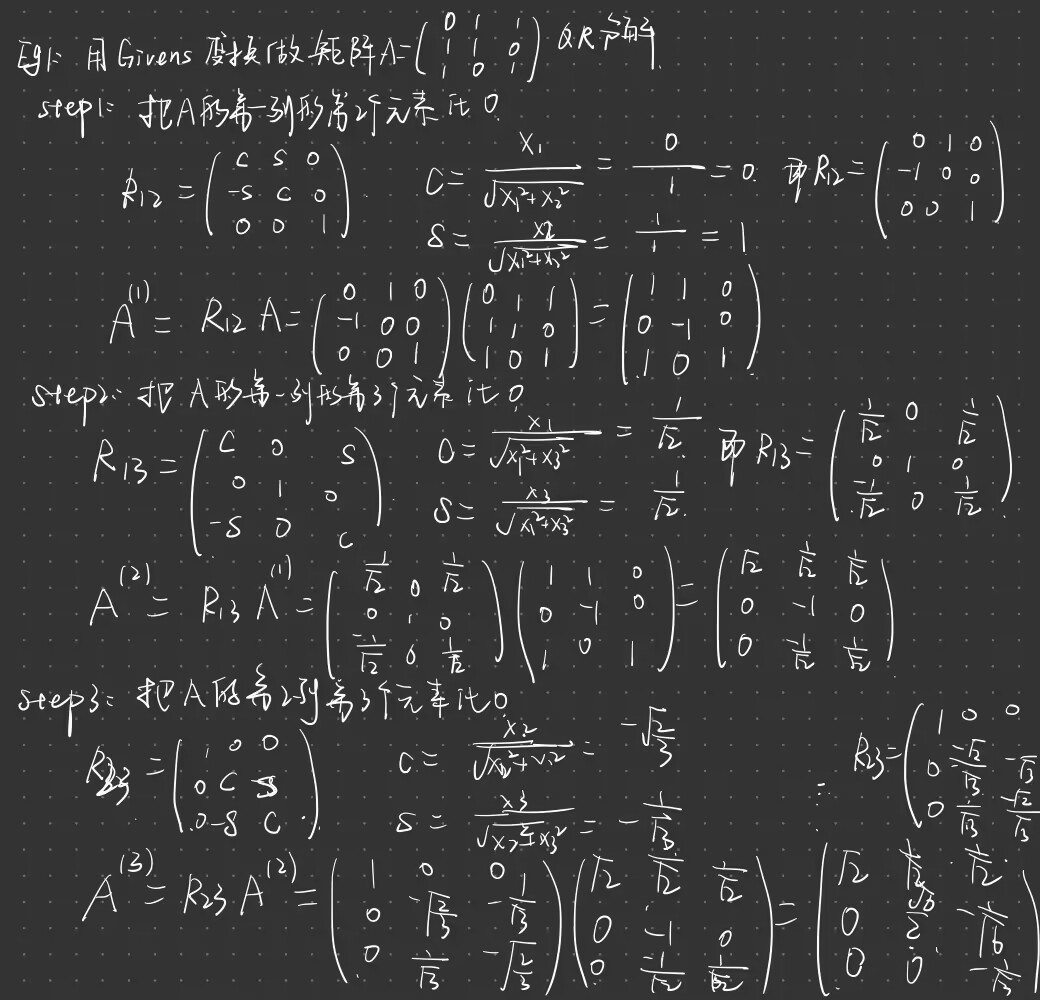 Eg1: 用 Givens 变换做矩阵 A=(0 1 1; 1 1 0; 1 0 1) QR分解.
step1: 把A的第一列的第2个元素化0.
R12 = (c s 0; -s c 0; 0 0 1). c = x1/√(x1²+x2²) = 0/1 = 0. 即 R12 = (0 1 0; -1 0 0; 0 0 1)
s = x2/√(x1²+x2²) = 1/1 = 1
A^(1) = R12 A = (0 1 0; -1 0 0; 0 0 1)(0 1 1; 1 1 0; 1 0 1) = (1 1 0; 0 -1 0; 1 0 1)
step2: 把A的第一列的第3个元素化0
R13 = (c 0 s; 0 1 0; -s 0 c). c = x1/√(x1²+x3²) = 1/√2 即 R13 = (1/√2 0 1/√2; 0 1 0; -1/√2 0 1/√2)
s = x3/√(x1²+x3²) = 1/√2.
A^(2) = R13 A^(1) = (1/√2 0 1/√2; 0 1 0; -1/√2 0 1/√2)(1 1 0; 0 -1 0; 1 0 1) = (√2 1/√2 1/√2; 0 -1 0; 0 -1/√2 1/√2)
step3: 把A的第2列第3个元素化0
R23 = (1 0 0; 0 c s; 0 -s c). c = x2/√(x2²+x3²) = -√(2/3) ∴ R23 = (1 0 0; 0 -√2/√3 -1/√3; 0 1/√3 -√2/√3)
s = x3/√(x2²+x3²) = -1/√3
A^(3) = R23 A^(2) = (1 0 0; 0 -√(2/3) -1/√3; 0 1/√3 -√(2/3))(√2 1/√2 1/√2; 0 -1 0; 0 -1/√2 1/√2) = (√2 1/√2 1/√2; 0 √6/2 -1/√6; 0 0 -1/√3)